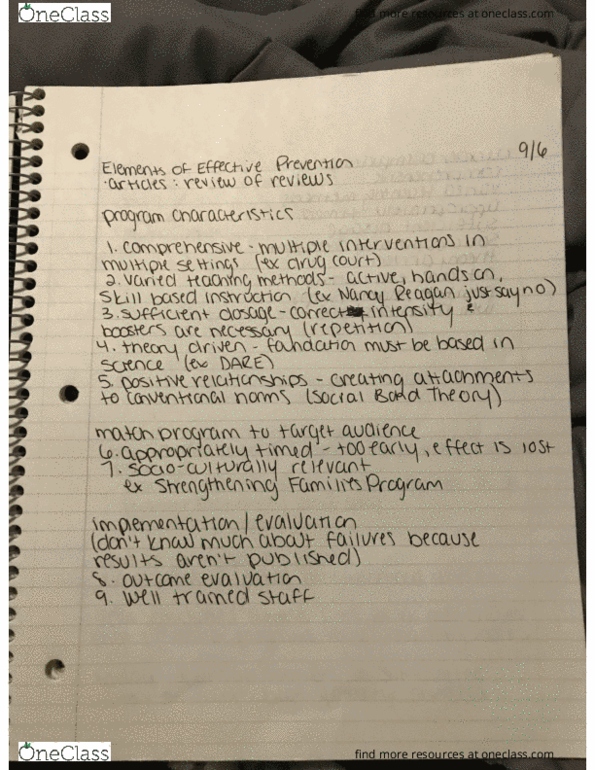 OneClass
find more resources at oneclass.com
9/6
Elements of Effective Prevention
·articles: review of reviews
program characteristics
1. comprehensive - multiple interventions in
multiple settings (ex drug court)
2. varied teaching methods - active, hands on,
skill based instruction (ex Nancy Reagan just say no)
3. sufficient dosage - correct intensity &
boosters are necessary (repetition)
4. theory driven - foundation must be based in
science (ex DARE)
5. positive relationships - creating attachments
to conventional norms (Social Bond Theory)
match program to target audience
6. appropriately timed - too early, effect is lost
7. socio-culturally relevant
ex Strengthening Families Program
implementation/evaluation
(don't know much about failures because
results aren't published)
8. outcome evaluation
9. well trained staff
OneClass
find more resources at oneclass.com